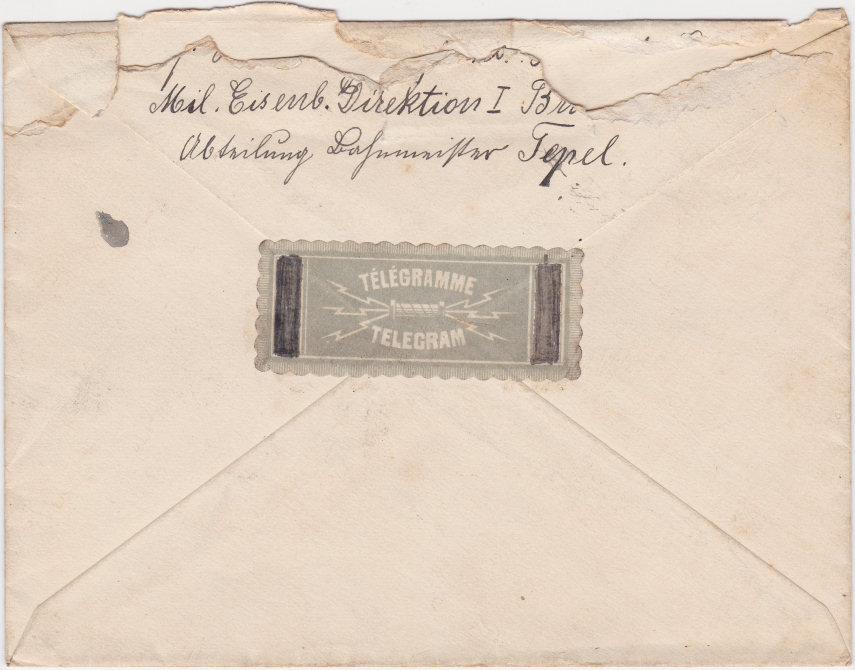 Mil. Eisenb. Direktion I
Abteilung Bahnmeister Tepel.
TÉLÉGRAMME
TELEGRAM